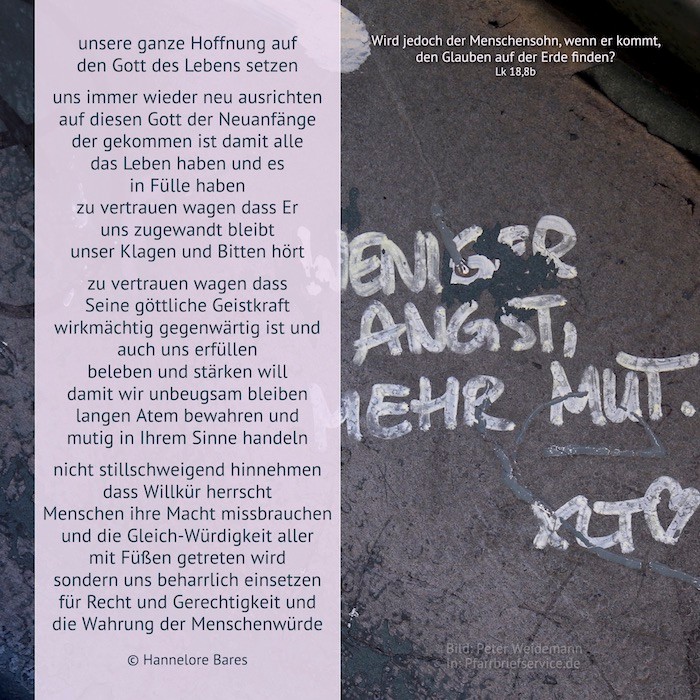 unsere ganze Hoffnung auf
den Gott des Lebens setzen
uns immer wieder neu ausrichten
auf diesen Gott der Neuanfänge
der gekommen ist damit alle
das Leben haben und es
in Fülle haben
zu vertrauen wagen dass Er
uns zugewandt bleibt
unser Klagen und Bitten hört
zu vertrauen wagen dass
Seine göttliche Geistkraft
wirkmächtig gegenwärtig ist und
auch uns erfüllen
beleben und stärken will
damit wir unbeugsam bleiben
langen Atem bewahren und
mutig in Ihrem Sinne handeln
nicht stillschweigend hinnehmen
dass Willkür herrscht
Menschen ihre Macht missbrauchen
und die Gleich-Würdigkeit aller
mit Füßen getreten wird
sondern uns beharrlich einsetzen
für Recht und Gerechtigkeit und
die Wahrung der Menschenwürde
© Hannelore Bares
Wird jedoch der Menschensohn, wenn er kommt,
den Glauben auf der Erde finden?
Lk 18,8b
WENIGER
ANGST,
MEHR MUT.
Bild: Peter Weidemann
In: Pfarrbriefservice.de